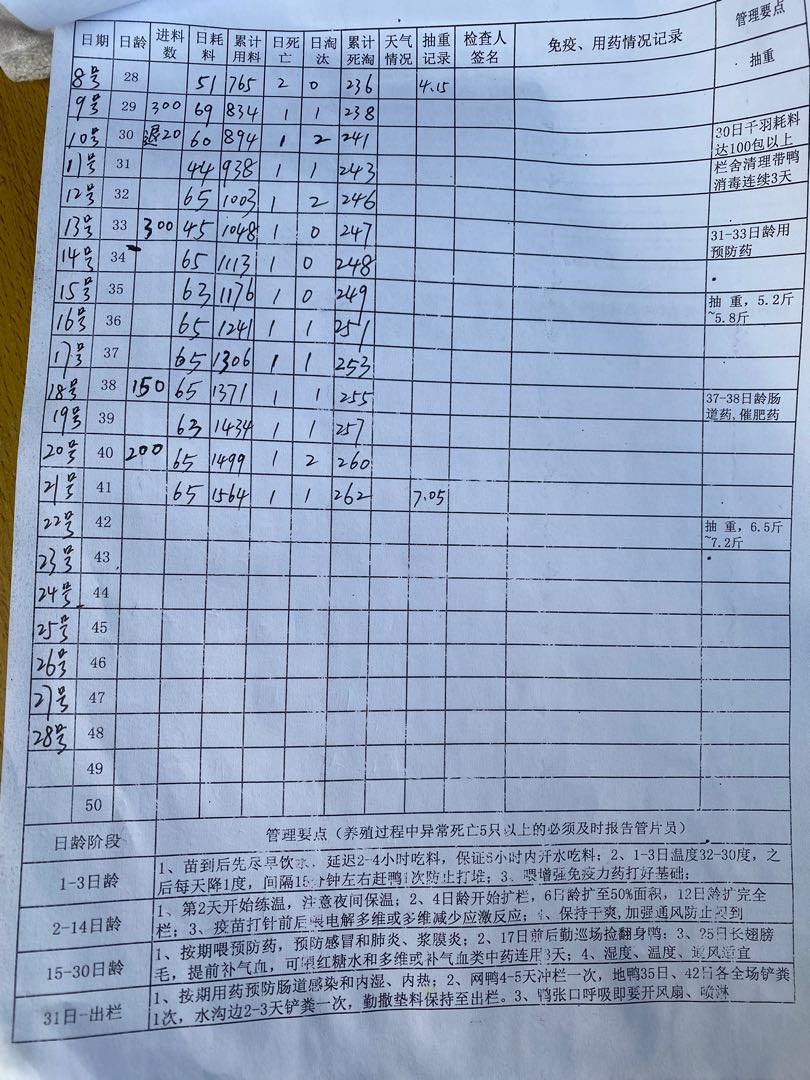 日期 日龄 进料数 日耗料 累计用料 日死亡 日淘汰 累计死淘 天气情况 抽重记录 检查人签名 免疫、用药情况记录 管理要点
8号 28 51 765 2 0 236 4.15 抽重
9号 29 300 69 834 1 1 238
10号 30 退20 60 894 1 2 241 30日千羽耗料达100包以上
11号 31 44 938 1 1 243 栏舍清理带鸭消毒连续3天
12号 32 65 1003 1 2 246
13号 33 300 45 1048 1 0 247 31-33日龄用预防药
14号 34 65 1113 1 0 248
15号 35 63 1176 1 0 249 抽 重，5.2斤~5.8斤
16号 36 65 1241 1 1 251
17号 37 65 1306 1 1 253
18号 38 150 65 1371 1 1 255 37-38日龄肠道药,催肥药
19号 39 63 1434 1 1 257
20号 40 200 65 1499 1 2 260
21号 41 65 1564 1 1 262 7.05
22号 42 抽 重，6.5斤~7.2斤
23号 43
24号 44
25号 45
26号 46
27号 47
28号 48
49
50
日龄阶段 管理要点（养殖过程中异常死亡5只以上的必须及时报告管片员）
1-3日龄 1、苗到后先尽早饮水，延迟2-4小时吃料，保证6小时内开水吃料；2、1-3日温度32-30度，之
后每天降1度，间隔15分钟左右赶鸭1次防止打堆；3、喂增强免疫力药打好基础；
2-14日龄 1、第2天开始练温，注意夜间保温；2、4日龄开始扩栏，6日龄扩至50%面积，12日龄扩完全
栏；3、疫苗打针前后喂电解多维或多维减少应激反应；4、保持干爽,加强通风防止闷到
15-30日龄 1、按期喂预防药，预防感冒和肺炎、浆膜炎；2、17日前后勤巡场捡翻身鸭；3、25日长翅膀
毛，提前补气血，可喂红糖水和多维或补气血类中药连用3天；4、湿度、温度、通风适宜
31日-出栏 1、按期用药预防肠道感染和内湿、内热；2、网鸭4-5天冲栏一次，地鸭35日、42日各全场铲粪
1次，水沟边2-3天铲粪一次，勤撒垫料保持至出栏。3、鸭张口呼吸即要开风扇、喷淋